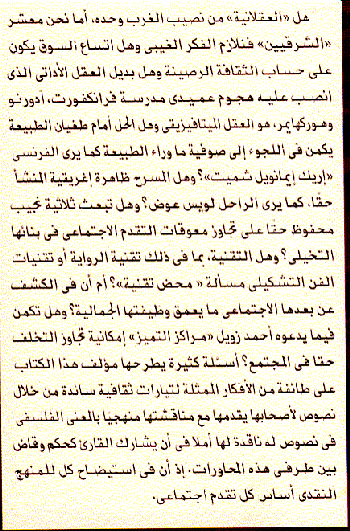 هل «العقلانية» من نصيب الغرب وحده، أما نحن معشر
«الشرقيين» فنلازم الفكر الغيبى وهل اتساع السوق يكون
على حساب الثقافة الرصينة وهل بديل العقل الأداتى الذى
انصب عليه هجوم عميدى مدرسة فرانكفورت، أدورنو
وهوركهايمر، هو العقل الميتافيزيقى وهل الحل أمام طغيان الطبيعة
يكمن فى اللجوء إلى صوفية ما وراء الطبيعة كما يرى الفرنسى
«إريك إيمانويل شميت»؟ وهل المسرح ظاهرة إغريقية المنشأ
حقا، كما يرى الراحل لويس عوض؟ وهل تبعث ثلاثية نجيب
محفوظ حقا على تجاوز معوقات التقدم الاجتماعى فى بنائها
التخيلى؟ وهل التقنية، بما فى ذلك تقنية الرواية أو تقنيات
الفن التشكيلى مسألة «محض تقنية»؟ أم أن فى الكشف
عن بعدها الاجتماعى ما يعمق وظيفتها الجمالية؟ وهل تكمن
فيما يدعوه أحمد زويل «مراكز التميز» إمكانية تجاوز التخلف
حقا فى المجتمع؟ أسئلة كثيرة يطرحها مؤلف هذا الكتاب
على طائفة من الأفكار الممثلة لتيارات ثقافية سائدة من خلال
نصوص لأصحابها يقدمها مع مناقشتها منهجيا بالمعنى الفلسفى
فى نصوص له ناقدة لها أملا فى أن يشارك القارئ كحكم وقاض
بين طرفى هذه المحاورات، إذ أن فى استيضاح كل للمنهج
النقدى أساس كل تقدم اجتماعى.